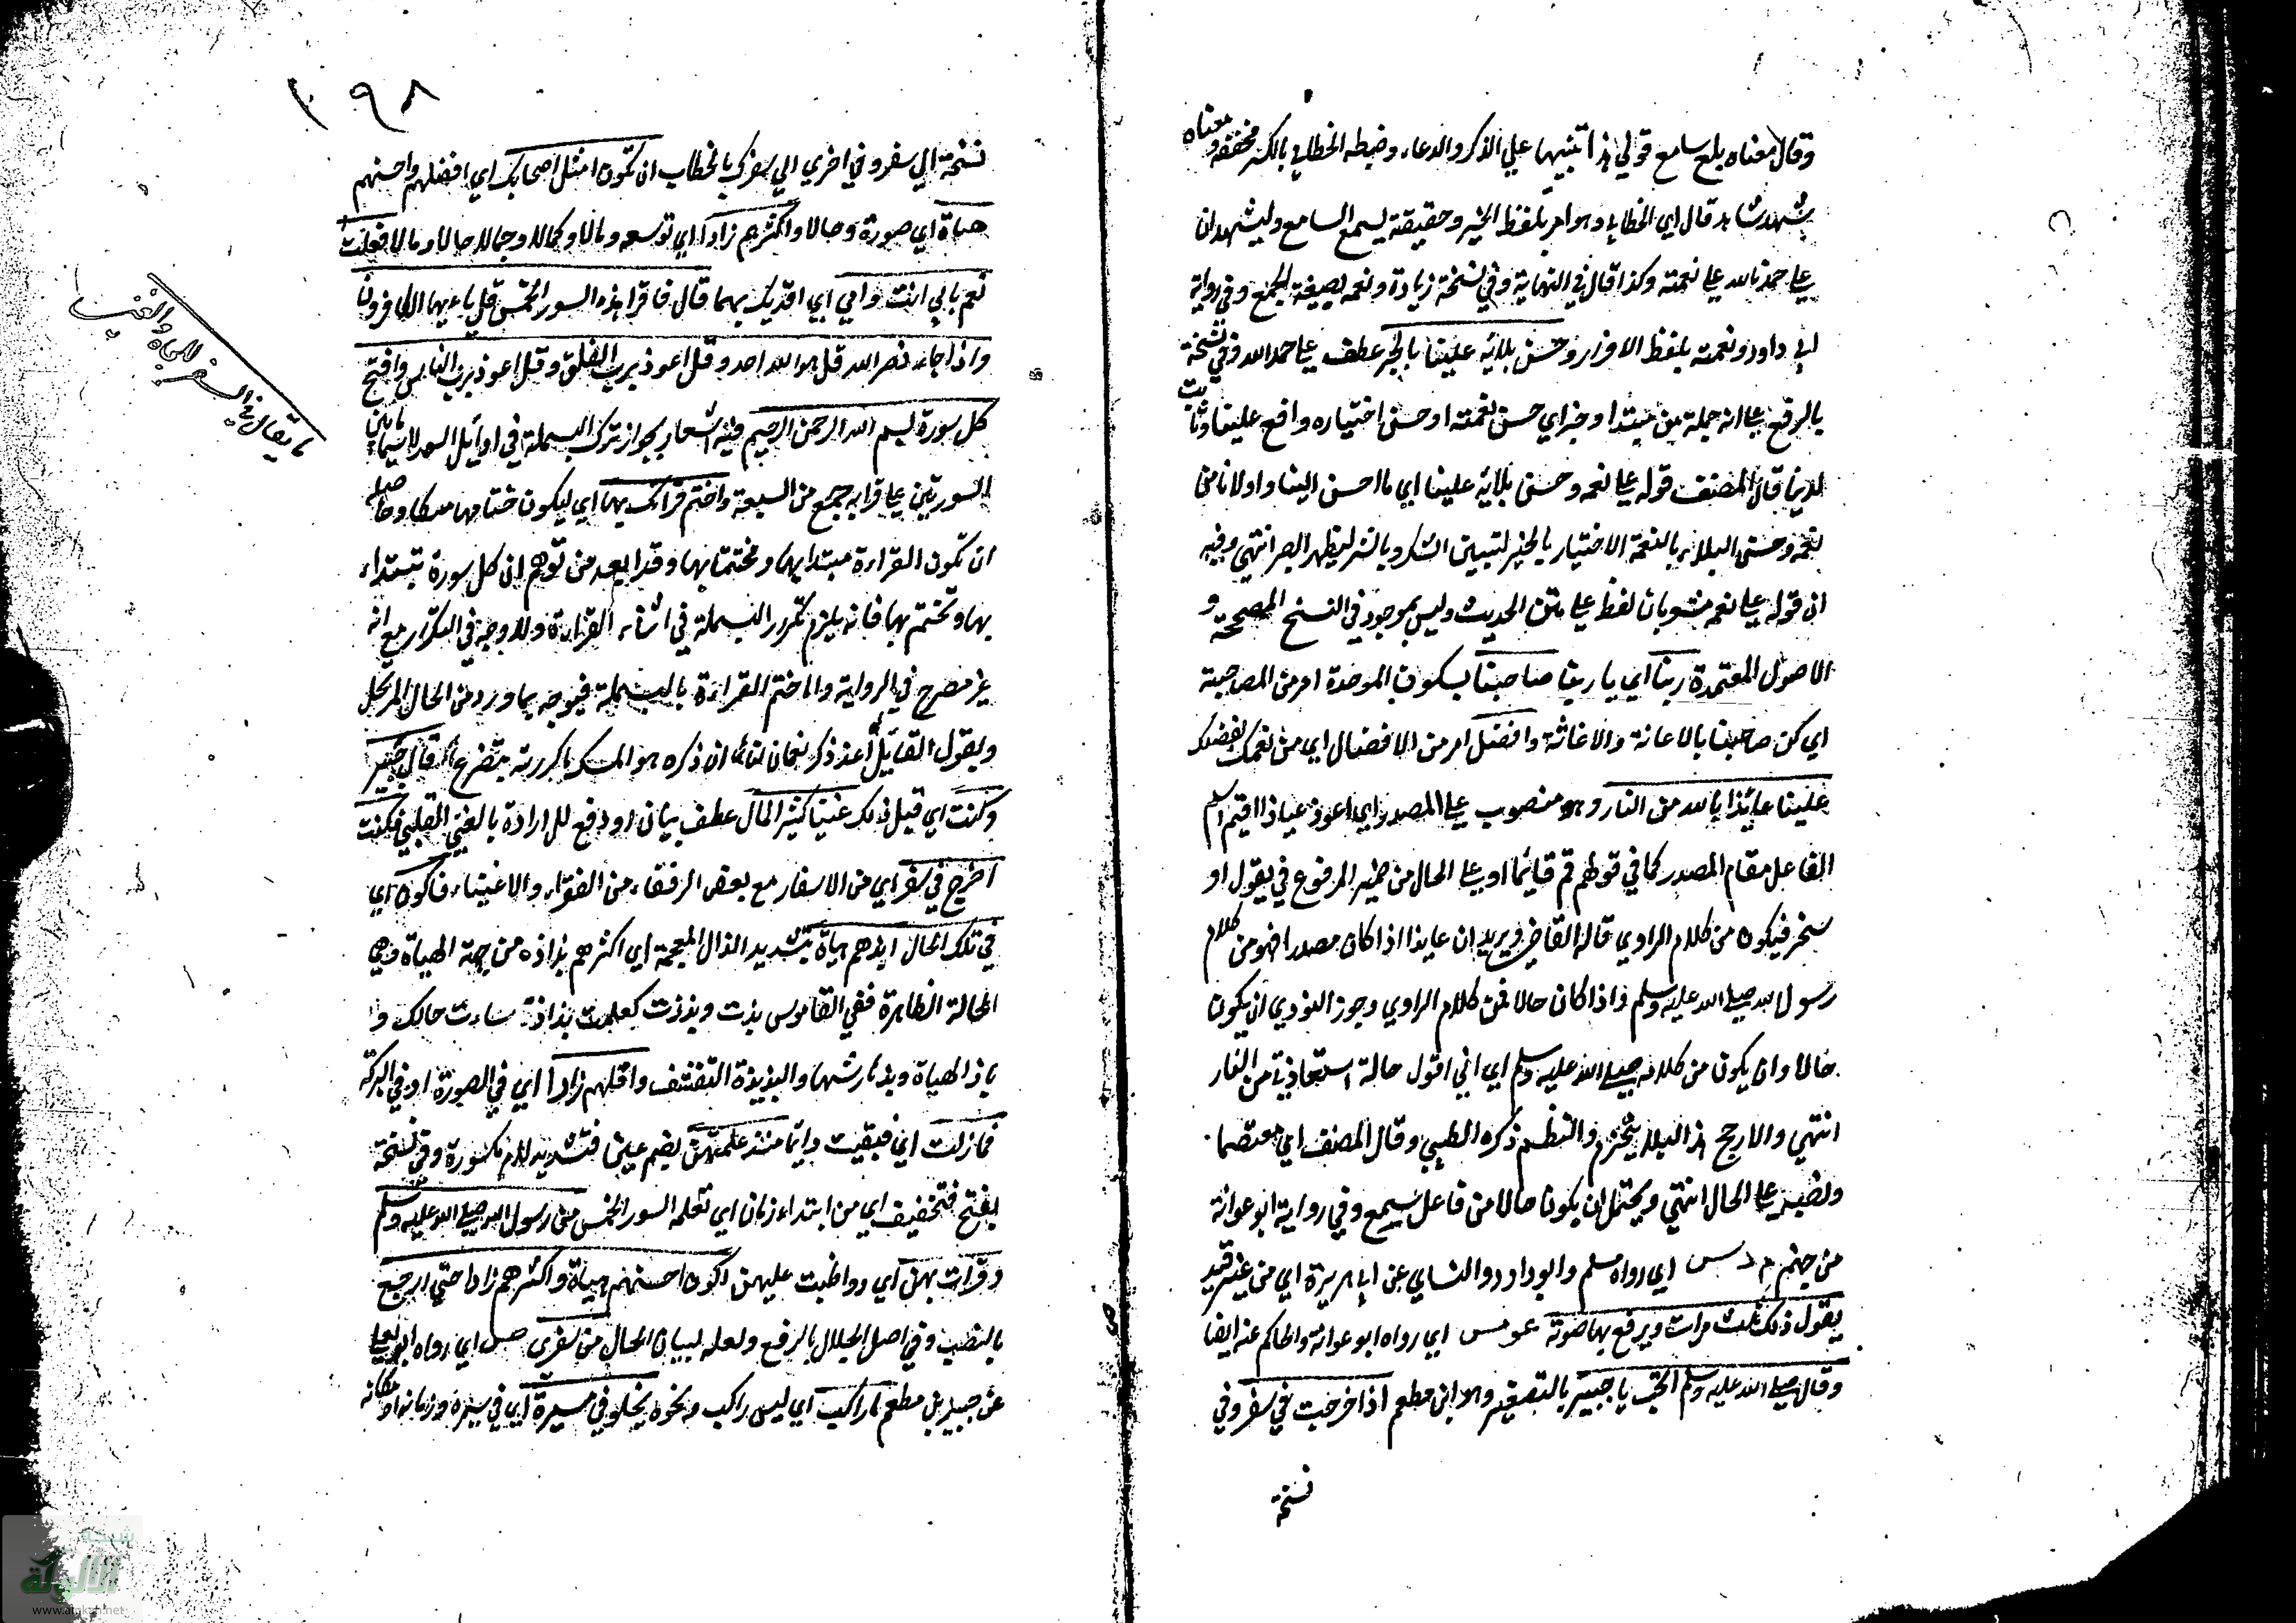 وقال معناه بلغ سامع قولي هذا تنبيها علي الذكر والدعاء وضبطه الخطابي بالكسر مخففة ومعناه
شهد شاهد قال اي الخطابي وهو امر بلفظ الخبر وحقيقته ليسمع السامع وليشهد ان
علي حمدنا لله علي نعمته وكذا قال في النهاية وفي نسخة زيادة ونعمه بصيغة الجمع وفي رواية
ابي داود ونعمته بلفظ الافراد وحسن بلائه علينا بالجر عطف علي حمد الله وفي نسخة
بالرفع علي انه جملة من مبتدا وخبر اي حسن نعمته او حسن اختياره واقع علينا وثابت
لدينا قال المصنف قوله علي نعمه وحسن بلائه علينا اي ما احسن الينا واولانا من
نعمه وحسن البلاء بالنعمة الاختبار بالخير لتبيين الشكر وبالشر ليظهر الصبر انتهي وفيه
ان قوله علي نعمه مشعر بان لفظ علي متن الحديث وليس بموجود في النسخ المصححة و
الاصول المعتمدة ربنا اي يا ربنا صاحبنا بسكون الموحدة امر من المصاحبة
اي كن صاحبنا بالاعانة والاغاثة وافضل امر من الافضال اي من نعمك بفضلك
علينا عائذا بالله من النار وهو منصوب علي المصدر اي اعوذ عياذا اقيم اسم
الفاعل مقام المصدر كما في قولهم قم قائما او علي الحال من ضمير المرفوع في يقول او
سحر فيكون من كلام الراوي قاله القاضي ويريد ان عايذا اذا كان مصدرا فهو من كلام
رسول الله صلي الله عليه وسلم واذا كان حالا فمن كلام الراوي وجوز النووي ان يكون
حالا وان يكون من كلامه صلي الله عليه وسلم اي اني اقول حالة استعاذتي من النار
انتهي والارجح هذا لئلا ينخرم والنظم ذكره الطيبي وقال المصنف اي معتصما
ونصبه علي الحال انتهي ويحتمل ان يكون حالا من فاعل سمع وفي رواية ابو عوانة
من جهنم م د س اي رواه مسلم وابو داود والنسائي عن ابي هريرة اي من غير قيد
يقول ذلك ثلث مرات ويرفع بها صوته عو مس اي رواه ابو عوانة والحاكم عنه ايضا
وقال صلي الله عليه وسلم اتحب يا جبير بالتصغير وهو ابن مطعم اذا خرجت في سفر وفي
نسخة
٣٩٨
نسخة الي سفر وفي اخري الي سفرك بالخطاب ان تكون امثل اصحابك اي افضلهم واحسنهم
هياة اي صورة وحالا واكثرهم زادا اي توسعه ومالا وكمالا وجمالا حالا ومالا فقلت
نعم بابي انت وامي اي افديك بهما قال فاقرا هذه السور الخمس قل يا ايها الكافرون
واذا جاء نصر الله قل هو الله احد وقل اعوذ برب الفلق وقل اعوذ برب الناس وافتح
كل سورة ببسم الله الرحمن الرحيم فيه اشعار بجواز ترك البسملة في اوائل السور لاسيما ما بين
السورتين علي قرا به جمع من السبعة واختم قراتك بها اي ليكون ختامها مسكا وحاصله
ان تكون القراءة مبتدا بها ومختتما بها وقد ابعد من توهم ان كل سورة تبتداء
بها وتختم بها فانه يلزم تكرر البسملة في اثناء القراءة ولا وجه في التكرار مع انه
غير مصرح في الرواية واما ختم القراءة بالبسملة فيوجه بما ورد من الحال المرتحل
وبقول القائل اعد ذكر نعمان لنا ان ذكره هو المسك ما كررته يتضوع قال جبير
وكنت اي قبل ذلك غنيا كثير المال عطف بيان او دفع للارادة بالغني القلبي فكنت
اخرج في سفر اي من الاسفار مع بعض الرفقاء من الفقراء والاغنياء فاكون اي
في تلك الحال ابذهم هياة بتشديد الذال المعجمة اي اكثرهم بذاذة من جهة الهياة وهي
الحالة الظاهرة ففي القاموس بذت وبذذت كعلمت بذاذة ساءت حالك و
باذ الهياة وبذها رثها والبذيذة التقشف واقلهم زادا اي في الصورة او في البركة
فما زلت اي فبقيت دايما منذ علمتهن بضم عين فتشديد لام مكسورة وفي نسخة
بفتح فتخفيف اي من ابتداء زمان اي تعلمه السور الخمس من رسول الله صلي الله عليه وسلم
وقرات بهن اي وواظبت عليهن اكون احسنهم هياة واكثرهم زادا حتي ارجع
بالنصب وفي اصل الجلال بالرفع ولعله لبيان الحال من سفري ص اي رواه ابو يعلي
عن جبير بن مطعم ما راكب اي ليس راكب ونحوه يخلو في مسيرة اي في سيره وزمانه او مكانه
ما يقال في السفر للجاه والغني